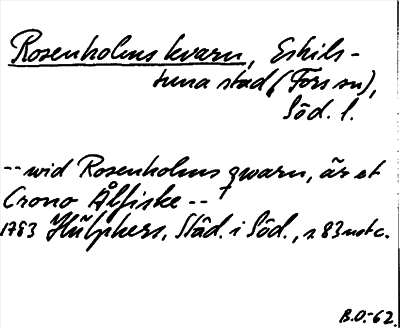 Rosenholms kvarn, Eskils-
tuna stad (Fors sn),
Söd. l.
-- wid Rosenholms qwarn, är et
Crono Ålfiske --
1783 Hülphers, Städ. i Söd., s. 83 not c.
B.O.-62.